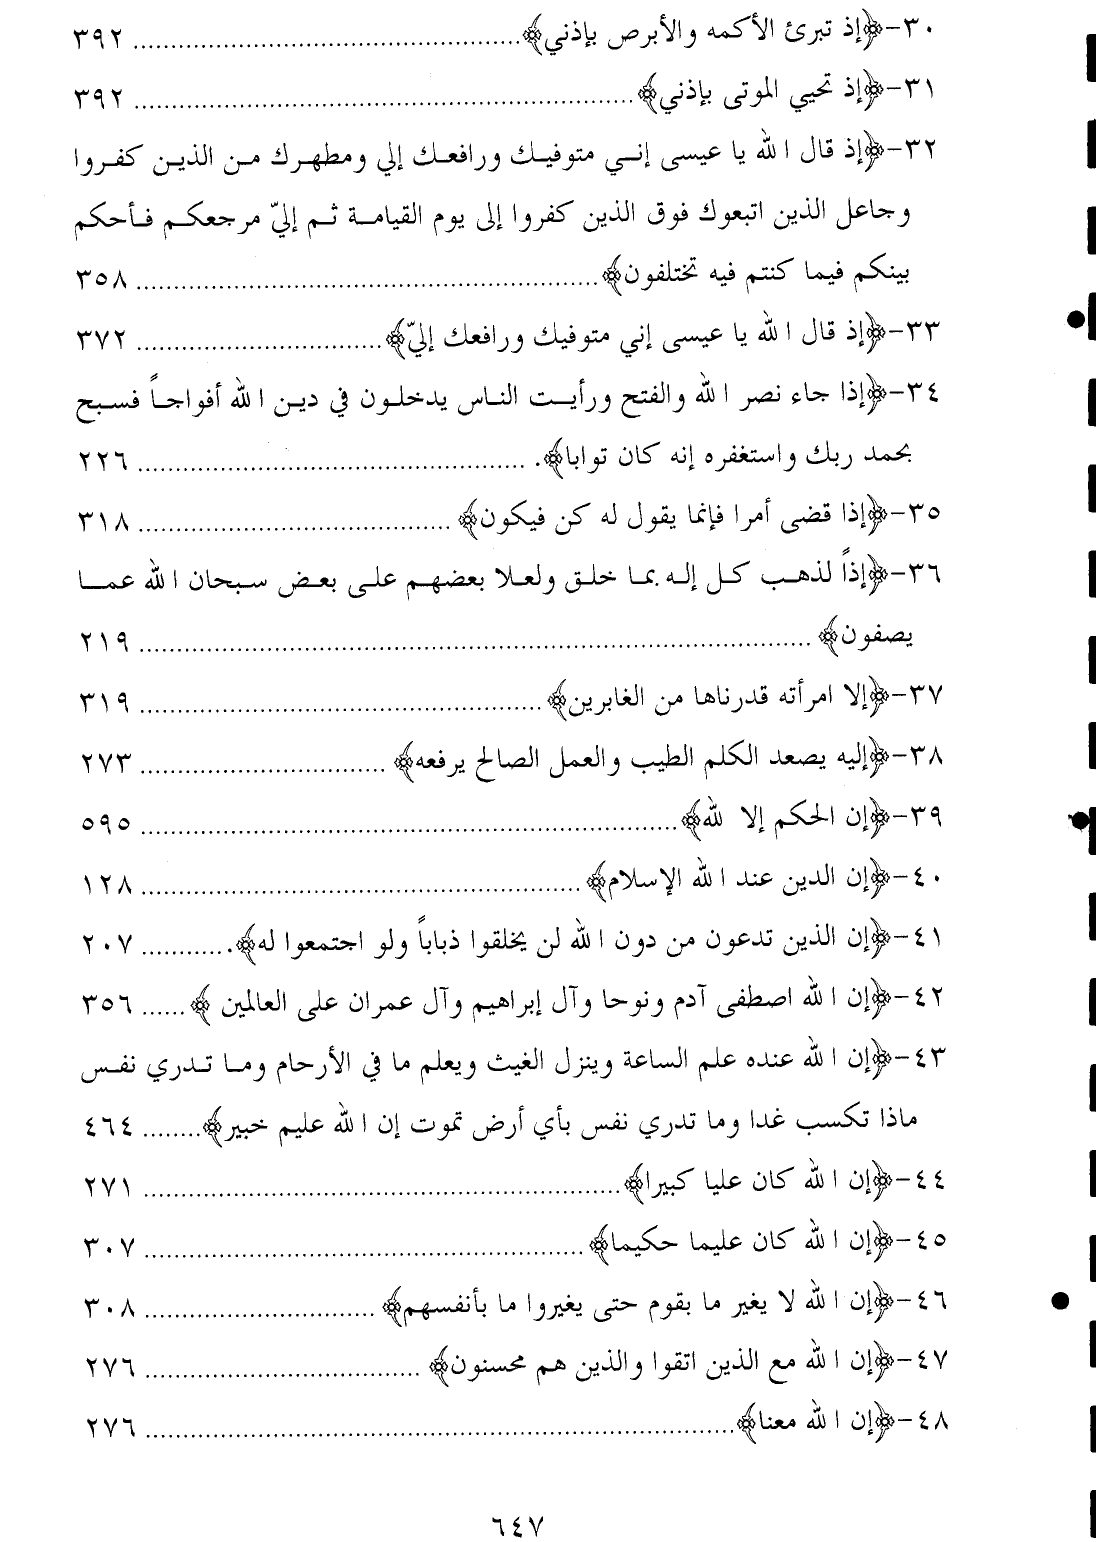 ٣٠-﴿إذ تبرئ الأكمه والأبرص بإذني﴾ ............ ٣٩٢
٣١-﴿إذ تحيي الموتى بإذني﴾ ............ ٣٩٢
٣٢-﴿إذ قال الله يا عيسى إنـي متوفيـك ورافعـك إلي ومطهـرك مـن الذيـن كفـروا
وجاعل الذين اتبعوك فوق الذين كفروا إلى يوم القيامـة ثـم إليّ مرجعكـم فـأحكم
بينكم فيما كنتم فيه تختلفون﴾ ............ ٣٥٨
٣٣-﴿إذ قال الله يا عيسى إني متوفيك ورافعك إليّ﴾ ............ ٣٧٢
٣٤-﴿إذا جاء نصر الله والفتح ورأيـت النـاس يدخلـون في ديـن الله أفواجـاً فسـبح
بحمد ربك واستغفره إنه كان توابا﴾. ............ ٢٢٦
٣٥-﴿إذا قضى أمرا فإنما يقول له كن فيكون﴾ ............ ٣١٨
٣٦-﴿إذاً لذهـب كـل إلـه بمـا خلـق ولعـلا بعضهـم علـى بعـض سـبحان الله عمـا
يصفون﴾ ............ ٢١٩
٣٧-﴿إلا امرأته قدرناها من الغابرين﴾ ............ ٣١٩
٣٨-﴿إليه يصعد الكلم الطيب والعمل الصالح يرفعه﴾ ............ ٢٧٣
٣٩-﴿إن الحكم إلا لله﴾ ............ ٥٩٥
٤٠-﴿إن الدين عند الله الإسلام﴾ ............ ١٢٨
٤١-﴿إن الذين تدعون من دون الله لن يخلقوا ذباباً ولو اجتمعوا له﴾. ............ ٢٠٧
٤٢-﴿إن الله اصطفى آدم ونوحا وآل إبراهيم وآل عمران على العالمين ﴾ ............ ٣٥٦
٤٣-﴿إن الله عنده علم الساعة وينزل الغيث ويعلم ما في الأرحام ومـا تـدري نفـس
ماذا تكسب غدا وما تدري نفس بأي أرض تموت إن الله عليم خبير﴾ ............ ٤٦٤
٤٤-﴿إن الله كان عليا كبيرا﴾ ............ ٢٧١
٤٥-﴿إن الله كان عليما حكيما﴾ ............ ٣٠٧
٤٦-﴿إن الله لا يغير ما بقوم حتى يغيروا ما بأنفسهم﴾ ............ ٣٠٨
٤٧-﴿إن الله مع الذين اتقوا والذين هم محسنون﴾ ............ ٢٧٦
٤٨-﴿إن الله معنا﴾ ............ ٢٧٦
٦٤٧